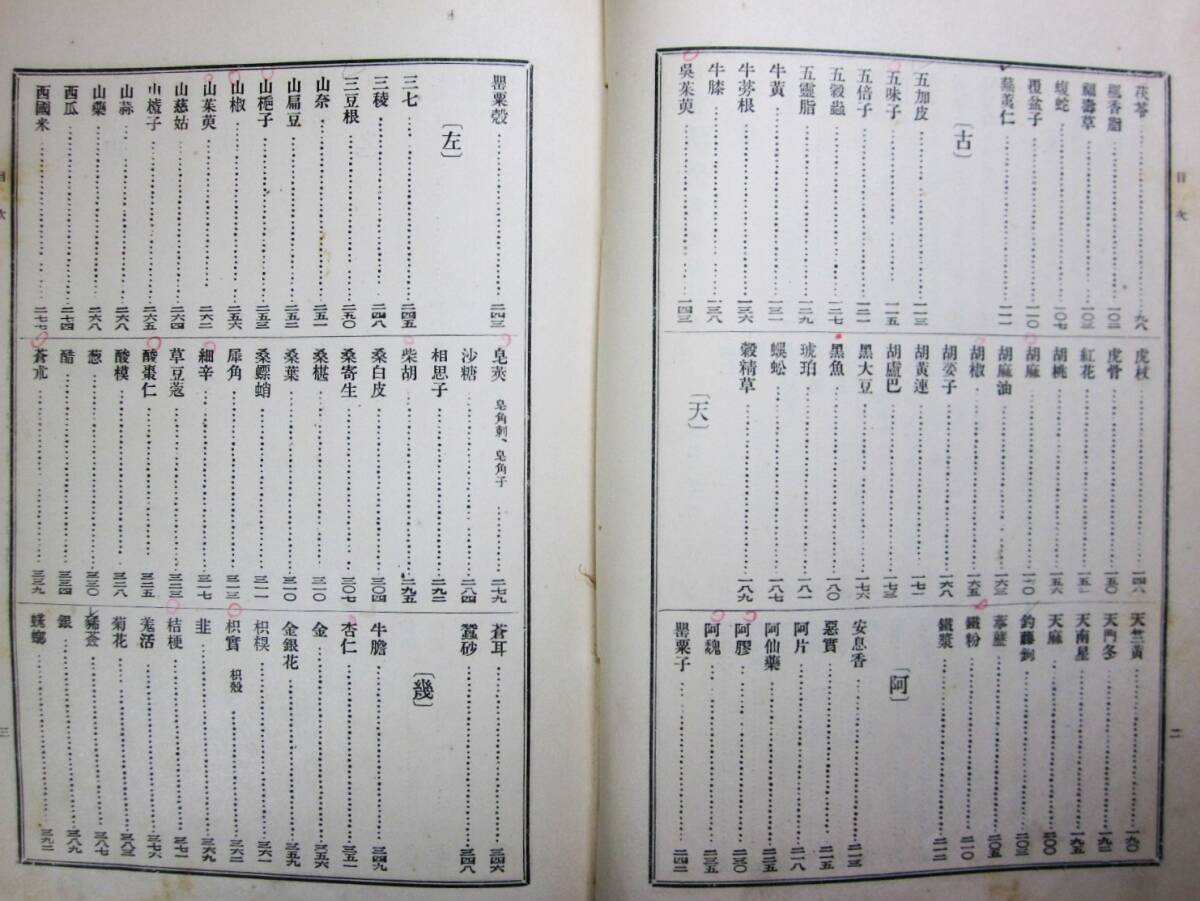 目次
二
茯苓 九八
楓香脂 一〇二
福壽草 一〇三
蝮蛇 一〇七
覆盆子 一一〇
蕪荑仁 一一一
〔古〕
五加皮 一一三
五味子 一一五
五倍子 一二一
五穀蟲 一二七
五靈脂 一二九
牛黃 一三一
牛蒡根 一三六
牛膝 一三八
吳茱萸 一四三
虎杖 一四八
虎骨 一五〇
紅花 一五一
胡桃 一五六
胡麻
胡麻油 一六三
胡椒 一六五
胡荽子 一六八
胡黃連 一七一
胡盧巴 一七三
黑大豆 一七六
黑魚 一八〇
琥珀 一八五
蜈蚣 一八七
穀精草 一八九
〔天〕
天竺黃 一九〇
天門冬 一九二
天南星 一九五
天麻 二〇〇
釣藤鉤 二〇三
葶藶 二〇五
鐵粉 二一〇
鐵漿 二一二
〔阿〕
安息香 二一三
惡實 二一五
阿片 二一八
阿仙藥 二二五
阿膠 二三〇
阿魏 二三五
罌粟子 二四二
罌粟殼 二四三
〔左〕
三七 二四五
三稜 二四八
三豆根 二五〇
山奈 二五一
山扁豆 二五二
山梔子 二五三
山椒 二五六
山茱萸 二六二
山慈姑 二六四
山樝子 二六五
山蒜 二六八
山藥 二六八
西瓜 二七四
西國米 二七七
皂莢 皂角刺、皂角子 二七九
沙糖 二八四
相思子 二九二
柴胡 二九五
桑白皮 三〇四
桑寄生 三〇七
桑椹 三一〇
桑葉 三一〇
桑螵蛸 三一一
犀角 三一三
細辛 三一七
草豆蔻 三二三
酸棗仁 三二五
酸模 三二八
葱 三三〇
醋 三三四
蒼朮 三三九
蒼耳 三四六
蠶砂 三四八
〔幾〕
牛膽 三四九
杏仁 三五一
金 三五六
金銀花 三五九
枳椇 三六一
枳實 枳殼 三六二
韭 三六九
桔梗 三七一
羌活 三七六
菊花 三八三
豨薟 三八七
銀 三八九
蜣螂 三九二
目次
三